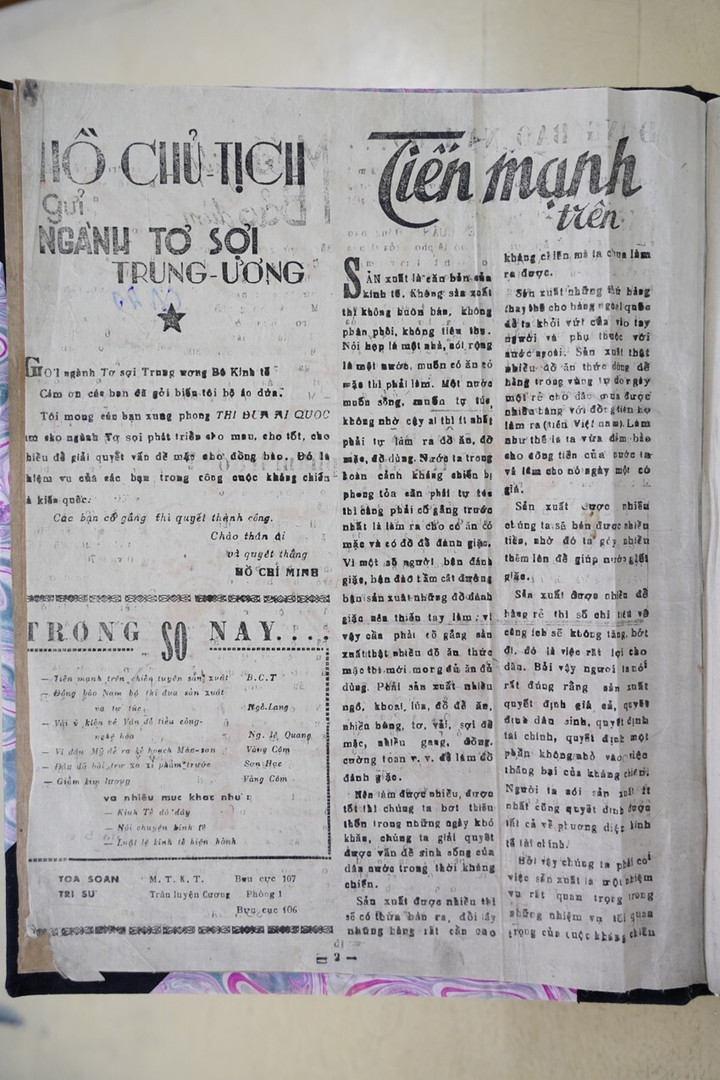 HỒ CHỦ TỊCH
gửi
NGÀNH TƠ SỢI
TRUNG-ƯƠNG
GỞI ngành Tơ sợi Trung ương Bộ Kinh tế
Cám ơn các bạn đã gởi biếu tôi bộ áo đũa.
Tôi mong các bạn xung phong THI ĐUA ÁI QUỐC
làm sao ngành Tơ sợi phát triển cho mau, cho tốt, cho
nhiều để giải quyết vấn đề mặc cho đồng bào. Đó là
nhiệm vụ của các bạn trong công cuộc kháng chiến
và kiến quốc.
Các bạn cố gắng thì quyết thành công.
Chào thân ái
và quyết thắng
HỒ CHÍ MINH
TRONG SỐ NÀY....
— Tiến mạnh trên chiến tuyến sản xuất B.C.T
— Đồng bào Nam bộ thi đua sản xuất
và tự túc Ngô.Lang
— Vài ý kiến về Vấn đề tiểu công-
nghệ hóa Ng. lệ Quang
— Vì đâu Mỹ đề ra kế hoạch Mác-san Vàng Côm
— Đâu đã bài trừ xa xỉ phẩm trước Sơn Học
— Giảm kim lượng Vàng Côm
và nhiều mục khác như :
— Kinh Tế đó đây
— Nói chuyện kinh tế
— Luật lệ kinh tế hiện hành
TÒA SOẠN M. T. K. T. Bưu cục 107
TRỊ SỰ Trần luyện Cương Phòng 1
Bưu cục 106
Tiến mạnh
trên
SẢN xuất là căn bản của
kinh tế. Không sản xuất
thì không buôn bán, không
phân phối, không tiêu thụ.
Nói hẹp là một nhà, nói rộng
là một nước, muốn có ăn có
mặc thì phải làm. Một nước
muốn sống, muốn tự túc,
không nhờ cậy ai thì ít nhất
phải tự làm ra đồ ăn, đồ
mặc, đồ dùng. Nước ta trong
hoàn cảnh kháng chiến bị
phong tỏa cần phải tự túc
thì càng phải cố gắng trước
nhất là làm ra cho có ăn có
mặc và có đồ để đánh giặc.
Vì một số người bận đánh
giặc, bận đào tầm cắt đường
bận sản xuất những đồ đánh
giặc nên thiếu tay làm ; vì
vậy cần phải cố gắng sản
xuất thật nhiều đồ ăn thức
mặc thì mới mong đủ ăn đủ
dùng. Phải sản xuất nhiều
ngô, khoai, lúa, đồ để ăn,
nhiều bông, tơ, vải, sợi để
mặc, nhiều gang, đồng,
cường toan v. v. để làm đồ
đánh giặc.
Nên làm được nhiều, được
tốt thì chúng ta bớt thiếu
thốn trong những ngày khó
khăn, chúng ta giải quyết
được vấn đề sinh sống của
dân nước trong thời kháng
chiến.
Sản xuất được nhiều thì
sẽ có thừa bán ra, đổi lấy
những hàng rất cần cao
kháng chiến mà ta chưa làm
ra được.
Sản xuất những thứ hàng
thay thế cho hàng ngoại quốc
để ta khỏi vứt của vào tay
người và phụ thuộc với
nước ngoài. Sản xuất thật
nhiều đồ ăn thức dùng để
hàng trong vùng tự do ngày
một rẻ cho dân mua được
nhiều hàng với đồng tiền họ
làm ra (tiền Việt nam). Làm
như thế là ta vừa đảm bảo
cho đồng tiền của nước ta
và làm cho nó ngày một có
giá.
Sản xuất được nhiều
chúng ta sẽ bán được nhiều
tiền, nhờ đó ta góp nhiều
thêm lên để giúp nước giết
giặc.
Sản xuất được nhiều để
hàng rẻ thì số chi tiêu về
công ích sẽ không tăng, bớt
đi, đó là việc rất lợi cho
dân. Bởi vậy người ta nói
rất đúng rằng sản xuất
quyết định giá cả, quyết
định dân sinh, quyết định
tài chính, quyết định một
phần không nhỏ vào việc
thắng bại của kháng chiến.
Người ta nói sản xuất ít
nhất cũng quyết định được
tất cả về phương diện kinh
tế tài chính.
Bởi vậy chúng ta phải coi
việc sản xuất là một nhiệm
vụ rất quan trọng trong
những nhiệm vụ tối quan
trọng của cuộc kháng chiến
— 2 —